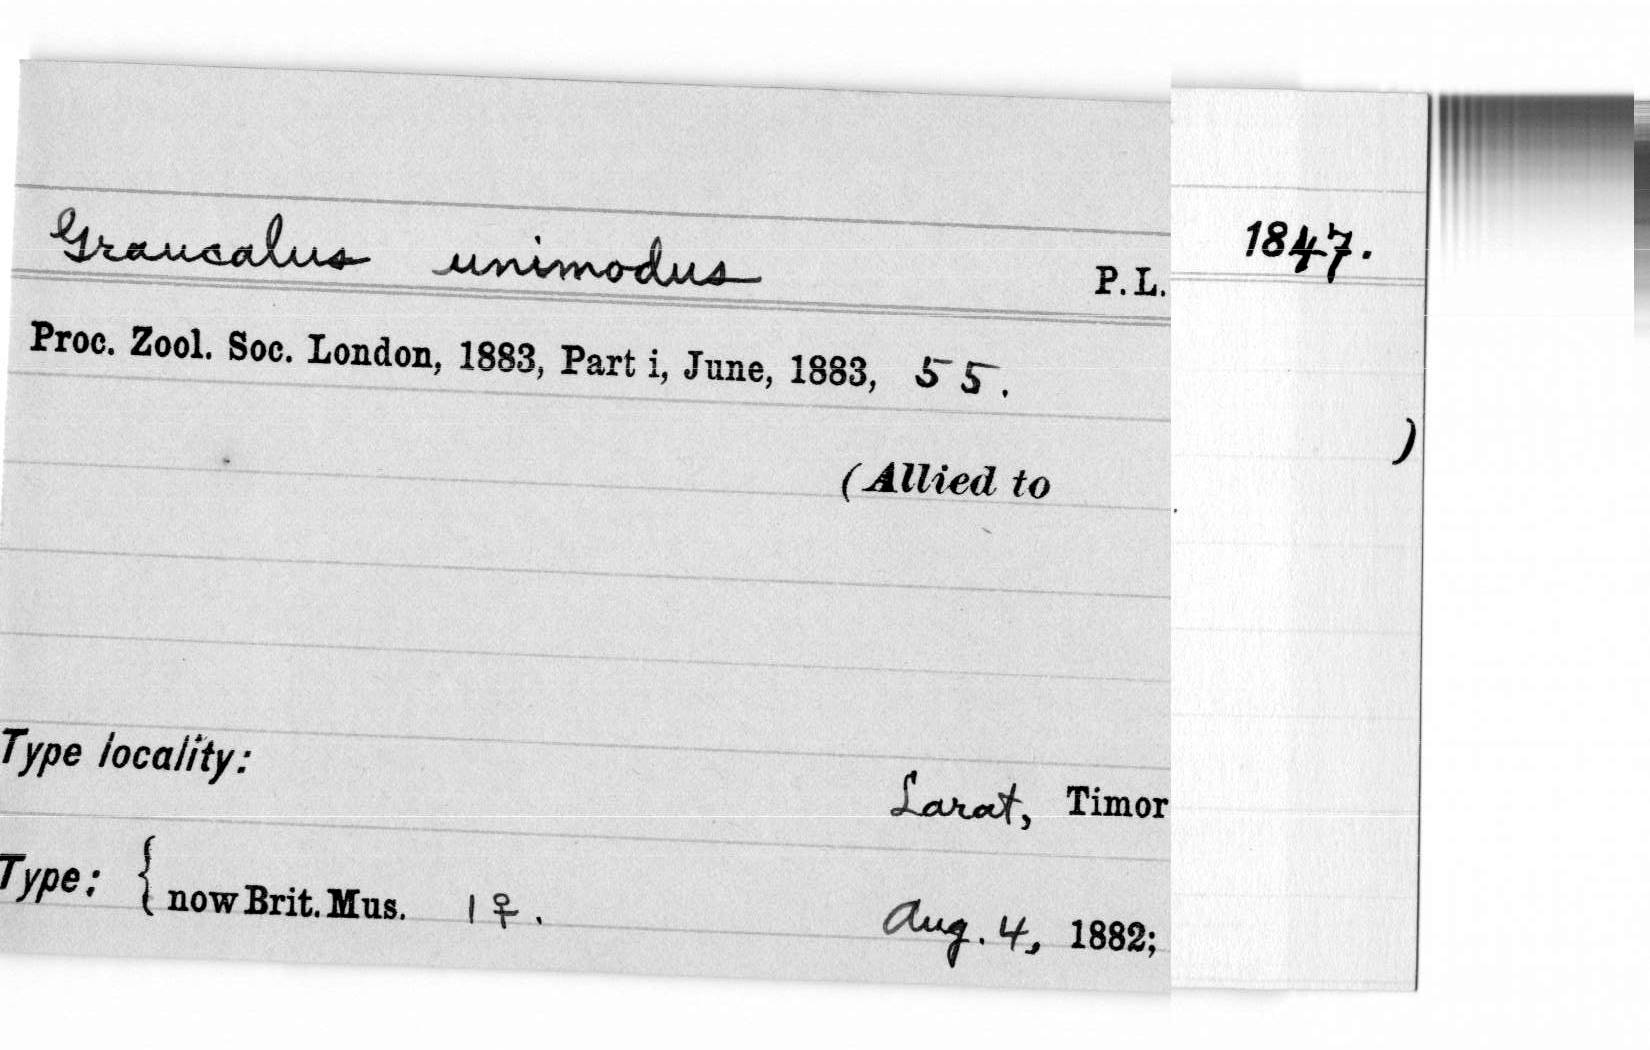 Graucalus unimodus P. L. 1847.
Proc. Zool. Soc. London, 1883, Part i, June, 1883, 55.
(Allied to )
Type locality: Larat, Timor
Type: { now Brit. Mus. 1♀. Aug. 4, 1882;